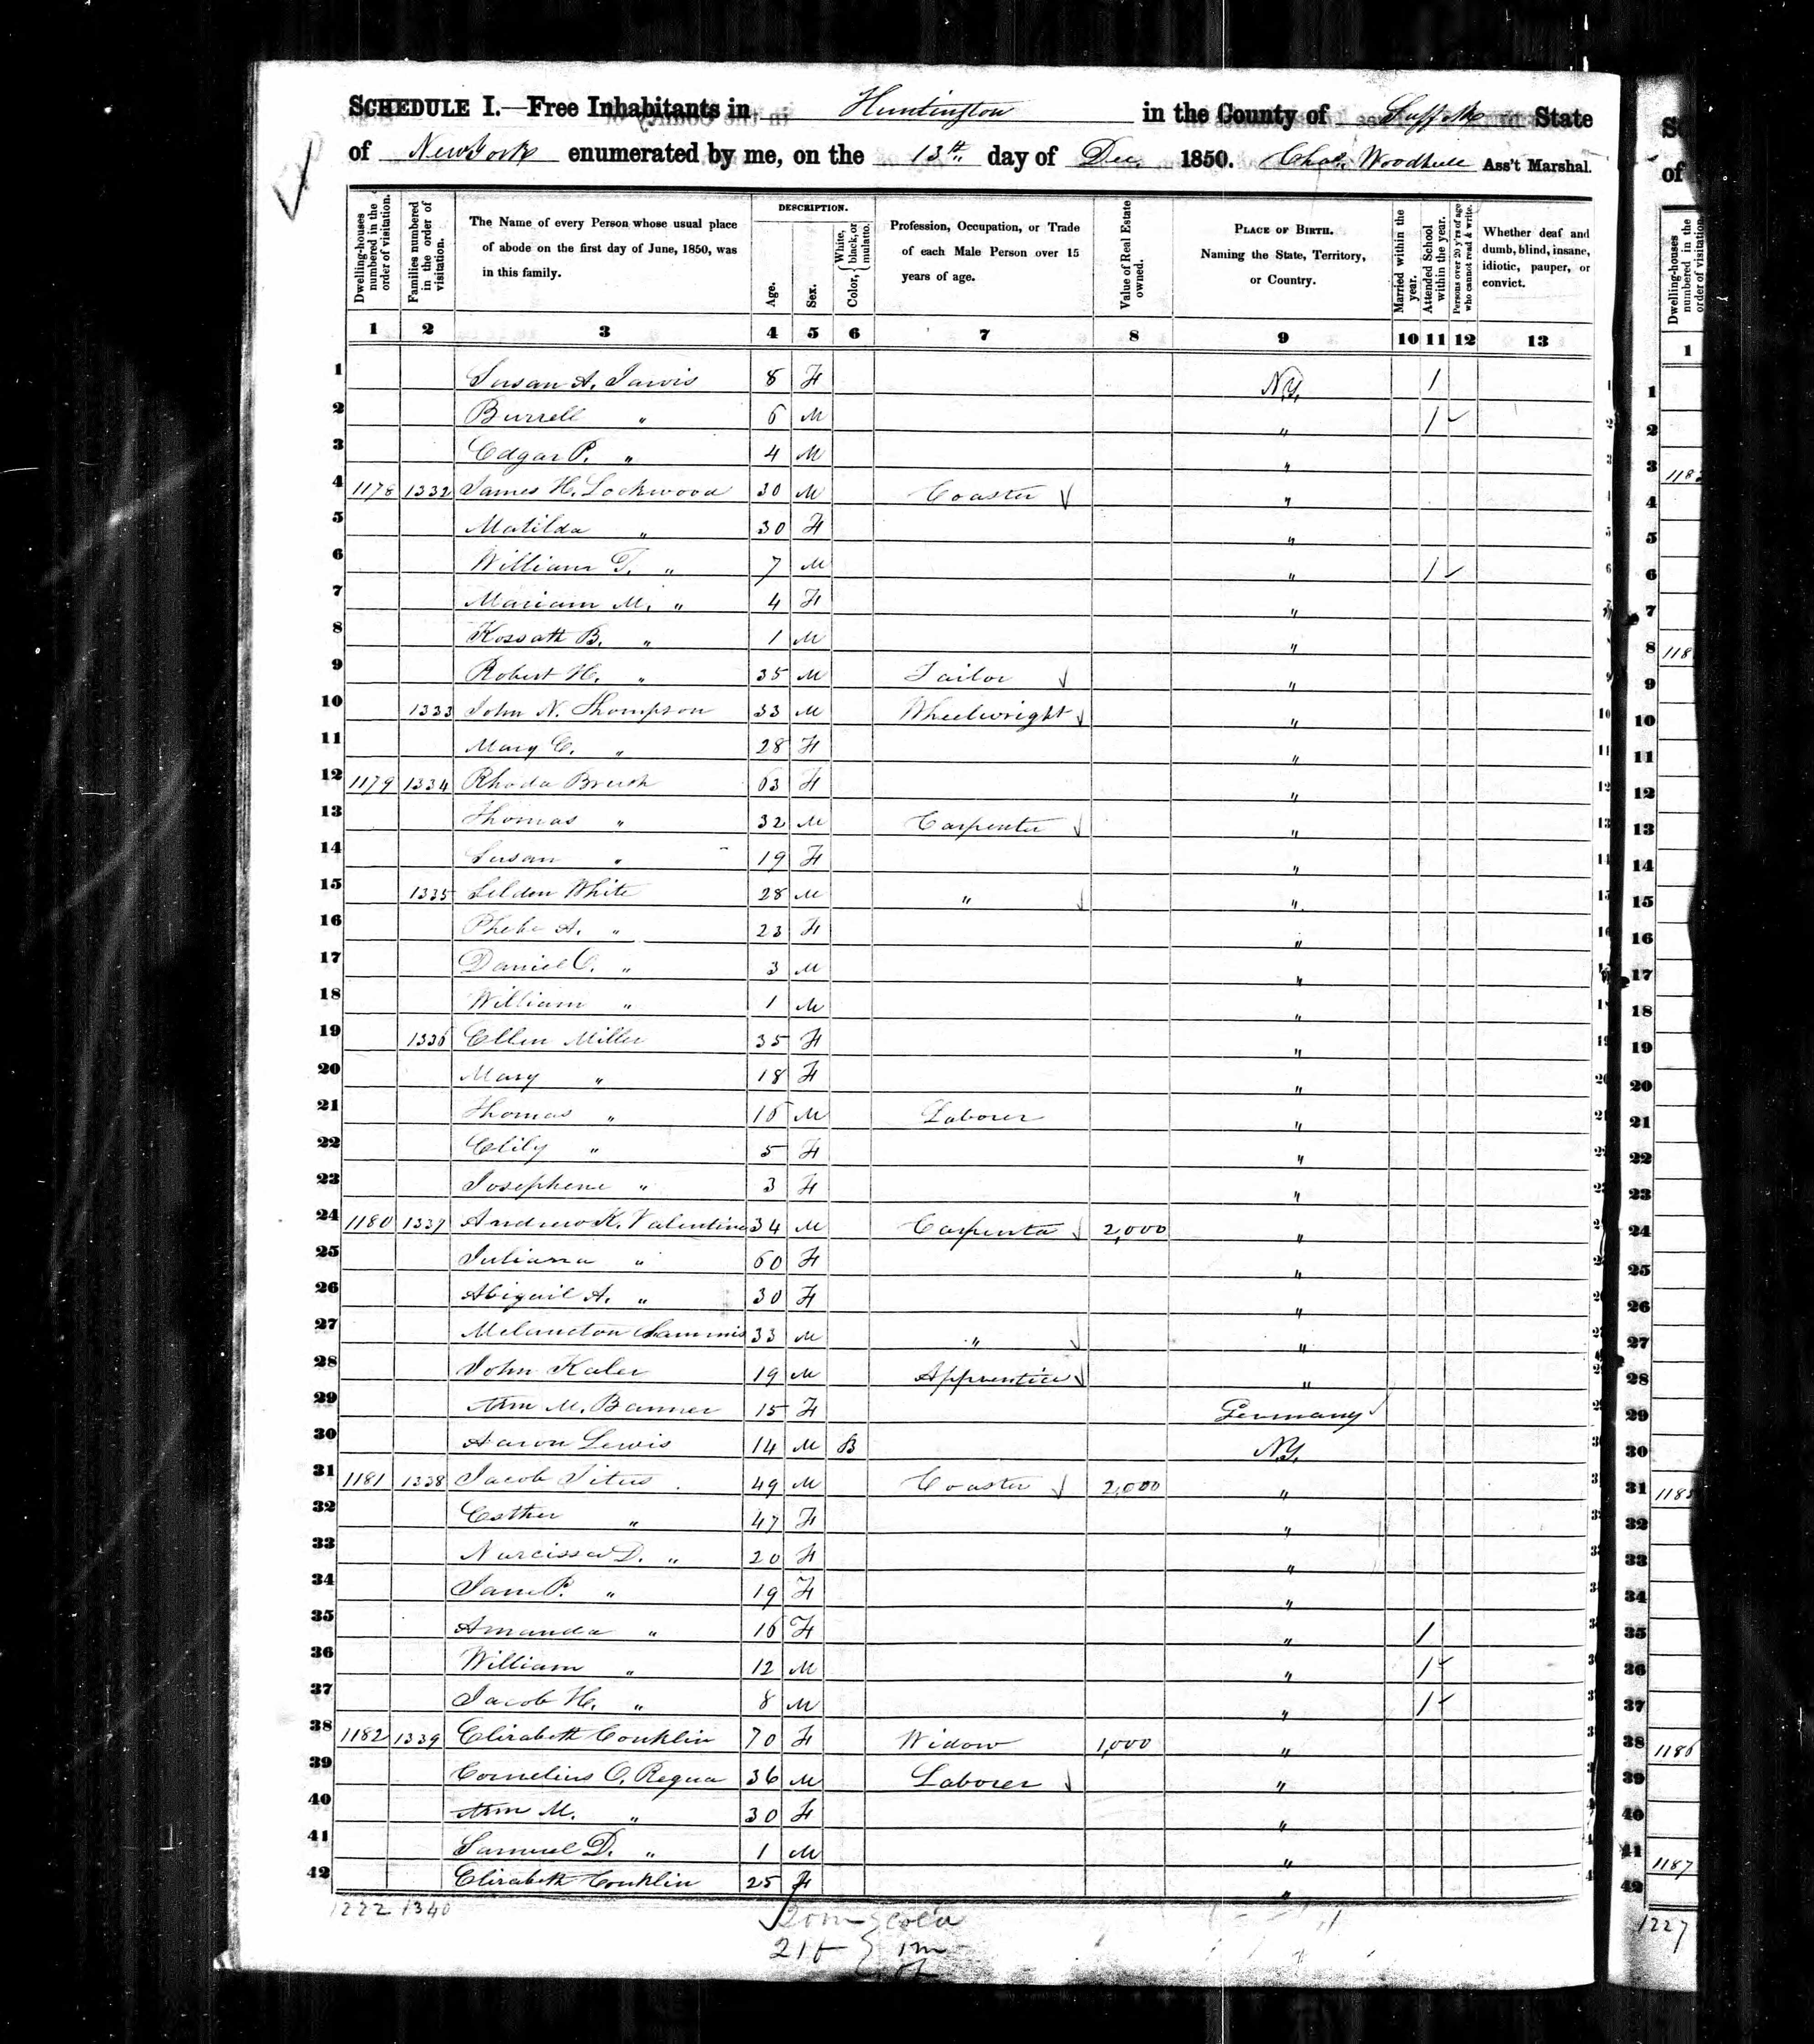 SCHEDULE I.—Free Inhabitants in Huntington in the County of Suffolk State
of New York enumerated by me, on the 13th. day of Dec. 1850. Chas. Woodhull Ass't Marshal.
Dwelling-houses numbered in the order of visitation.
Families numbered in the order of visitation.
The Name of every Person whose usual place of abode on the first day of June, 1850, was in this family.
DESCRIPTION.
Age.
Sex.
Color, { White, black, or mulatto.
Profession, Occupation, or Trade of each Male Person over 15 years of age.
Value of Real Estate owned.
PLACE OF BIRTH. Naming the State, Territory, or Country.
Married within the year.
Attended School within the year.
Persons over 20 y'rs of age who cannot read & write.
Whether deaf and dumb, blind, insane, idiotic, pauper, or convict.
1 2 3 4 5 6 7 8 9 10 11 12 13
1 Susan A. Jarvis 8 F N.Y. 1
2 Burrell " 6 M " 1 ✓
3 Edgar P. " 4 M "
4 1178 1332 James H. Lockwood 30 M Coaster ✓ "
5 Matilda " 30 F "
6 William T. " 7 M " 1 ✓
7 Mariam M. " 4 F "
8 Kossath B. " 1 M "
9 Robert H. " 35 M Tailor ✓ "
10 1333 John N. Thompson 33 M Wheelwright ✓ "
11 Mary C. " 28 F "
12 1179 1334 Rhoda Brush 63 F "
13 Thomas " 32 M Carpenter ✓ "
14 Susan " 19 F "
15 1335 Seldon White 28 M " ✓ "
16 Phebe A. " 23 F "
17 Daniel C. " 3 M "
18 William " 1 M "
19 1336 Ellen Miller 35 F "
20 Mary " 18 F "
21 Thomas " 16 M Laborer "
22 Elily " 5 F "
23 Josephene " 3 F "
24 1180 1337 Andrew K. Valentine 34 M Carpenter ✓ 2,000 "
25 Juliana " 60 F "
26 Abigail A. " 30 F "
27 Melancton Sammis 33 M " ✓ "
28 John Kaler 19 M Apprentice ✓ "
29 Ann M. Banner 15 F Germany ✓
30 Aaron Lewis 14 M B N.Y.
31 1181 1338 Jacob Titus 49 M Coaster ✓ 2,000 "
32 Esther " 47 F "
33 Narcissa D. " 20 F "
34 Jane P. " 19 F "
35 Amanda " 16 F " 1
36 William " 12 M " 1 ✓
37 Jacob H. " 8 M " 1 ✓
38 1182 1339 Elizabeth Conklin 70 F Widow 1,000 "
39 Cornelius O. Requa 36 M Laborer ✓ "
40 Ann M. " 30 F "
41 Samuel D. " 1 M "
42 Elizabeth Conklin 25 F "
1222 1340
20m
21f 1m
1227